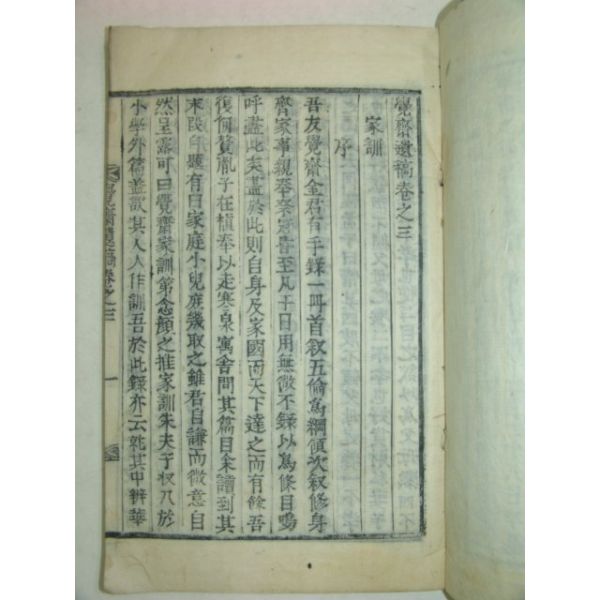 覺齋遺稿卷之三
家訓
序
吾友覺齋金君有手錄一冊首叙五倫爲綱領次叙修身
齊家事親奉祭居至凡干日用無微不錄以爲條目嗚
呼盡此矣盡於此則自身及家國而天下達之而有餘吾
復何贅胤子在禛奉以走寒泉寓舍問其篇目余讀到其
末段印題有曰家庭小兒庶幾取之雖君自謙而微意自
然呈露可曰覺齋家訓第念顔之推家訓朱夫子収入於
小學外篇蓋欲其人人作訓吾於此錄亦云就其中辨華
覺齋遺稿卷之三
一